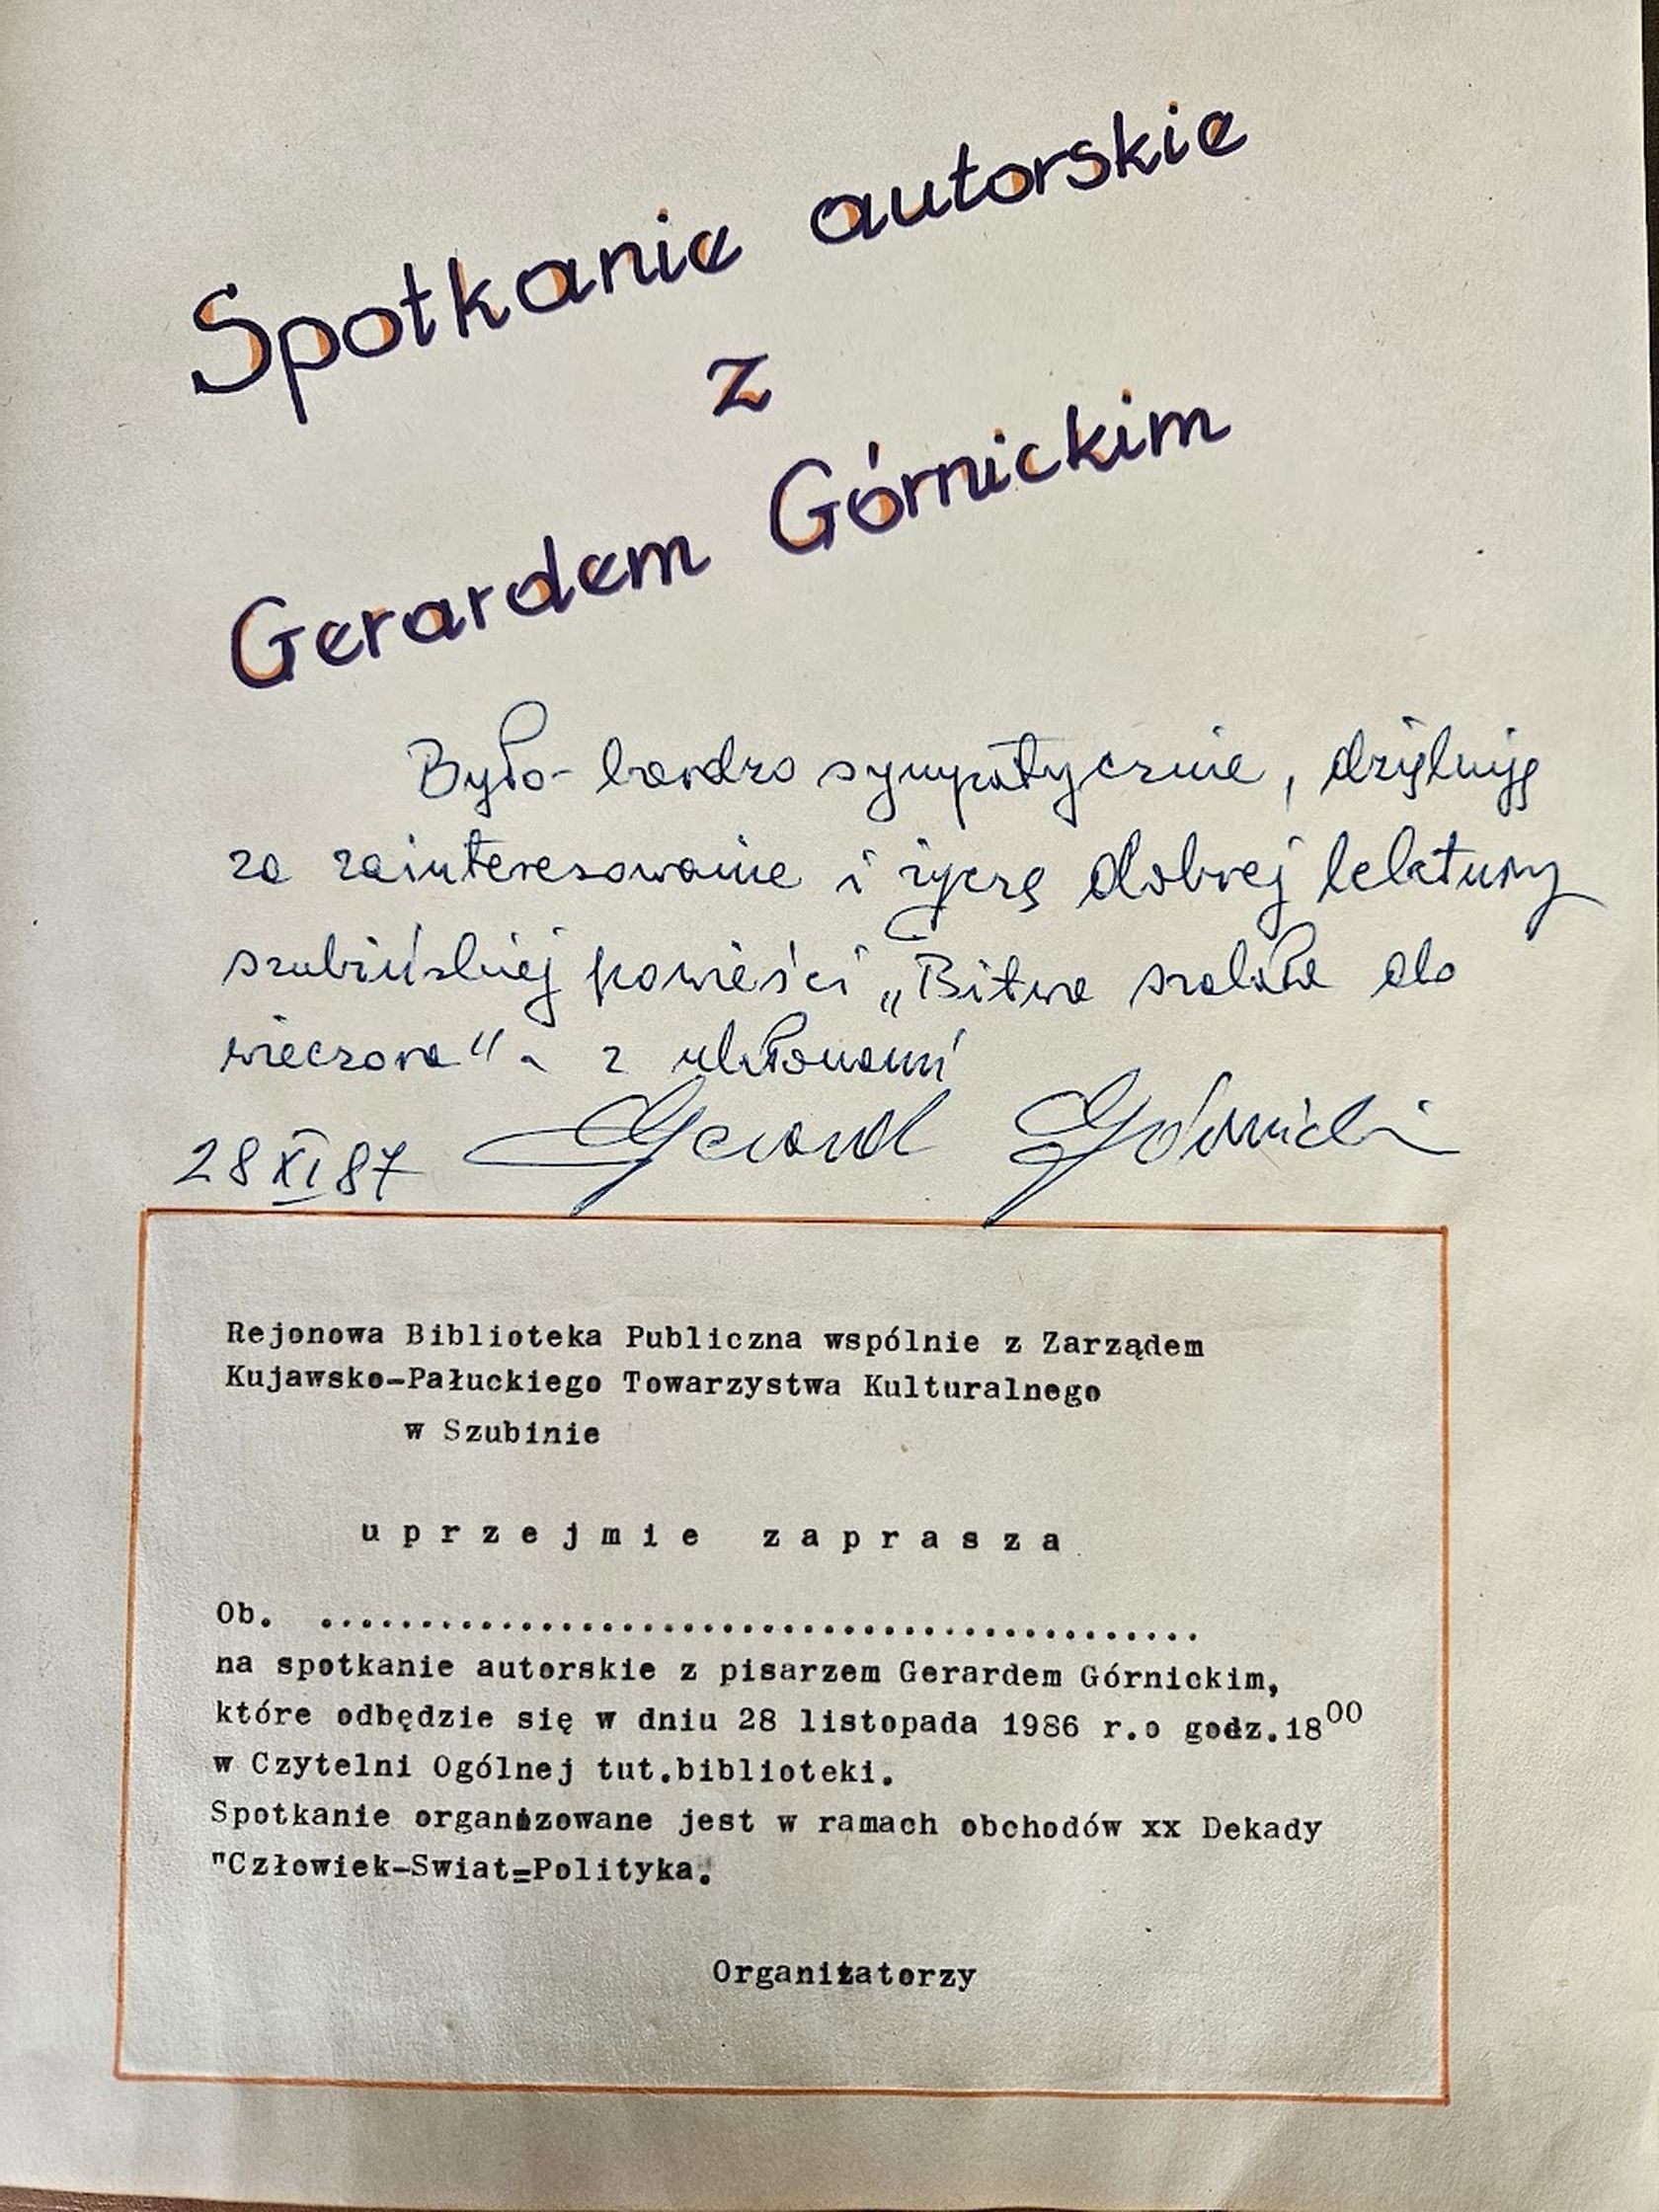 Spotkanie autorskie
z
Gerardem Górnickim
Było bardzo sympatycznie, dziękuję
za zainteresowanie i życzę dobrej lektury
szubińskiej powieści „Bitwa szalała do
wieczora" - z ukłonami
28 XI 87 Gerard Górnicki
Rejonowa Biblioteka Publiczna wspólnie z Zarządem
Kujawsko-Pałuckiego Towarzystwa Kulturalnego
w Szubinie
u p r z e j m i e z a p r a s z a
Ob. ............................................
na spotkanie autorskie z pisarzem Gerardem Górnickim,
które odbędzie się w dniu 28 listopada 1986 r.o godz.18⁰⁰
w Czytelni Ogólnej tut.biblioteki.
Spotkanie organizowane jest w ramach obchodów xx Dekady
"Człowiek-Swiat=Polityka.
Organizatorzy